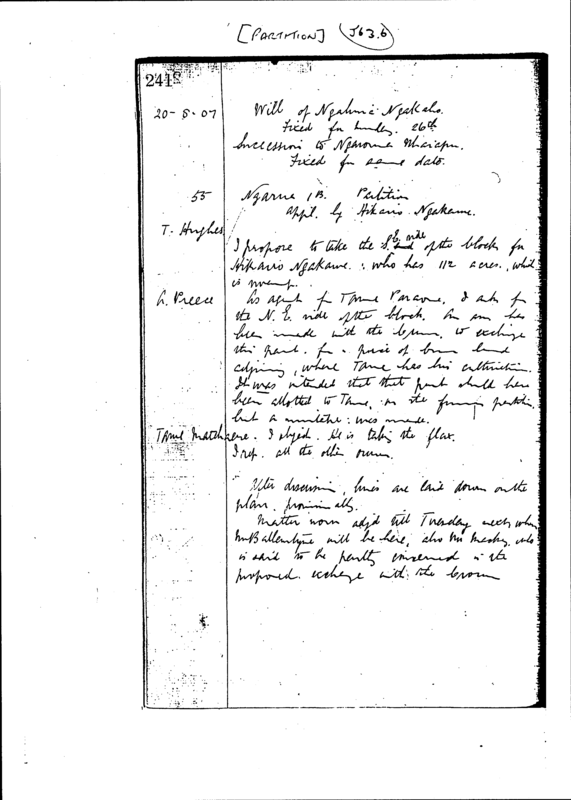 [PARTITION] J63.6
241
20-8-07 Will of Ngahuia Ngakaho.
Fixed for Monday. 26th
Succession to
Fixed for same date.
55 Ngarue 1B. Partition
appl. by Hikaris Ngakawe.
T. Hughes
I propose to take the S.E. side of the block for
Hikaris Ngakawe. who has 112 acres, which
is
A. Preece As agent for Tame Paraone, I ask for
the N.E. side of the block. An has
been made with the Crown, to exchange
this part. for a piece of Crown land
adjoining, where Tame has his cultivation.
It was intended that that part should have
been allotted to Tame, on the partition,
but a mistake was made.
Tame I object. He is taking the flax.
I rep. all the other owners.
After discussion, lines are laid down on the
plan. provisionally.
Matter now adjd till Tuesday next when
Mr Ballantyne will be here, also Mr who
is said to be partly concerned in the
proposed exchange with the Crown